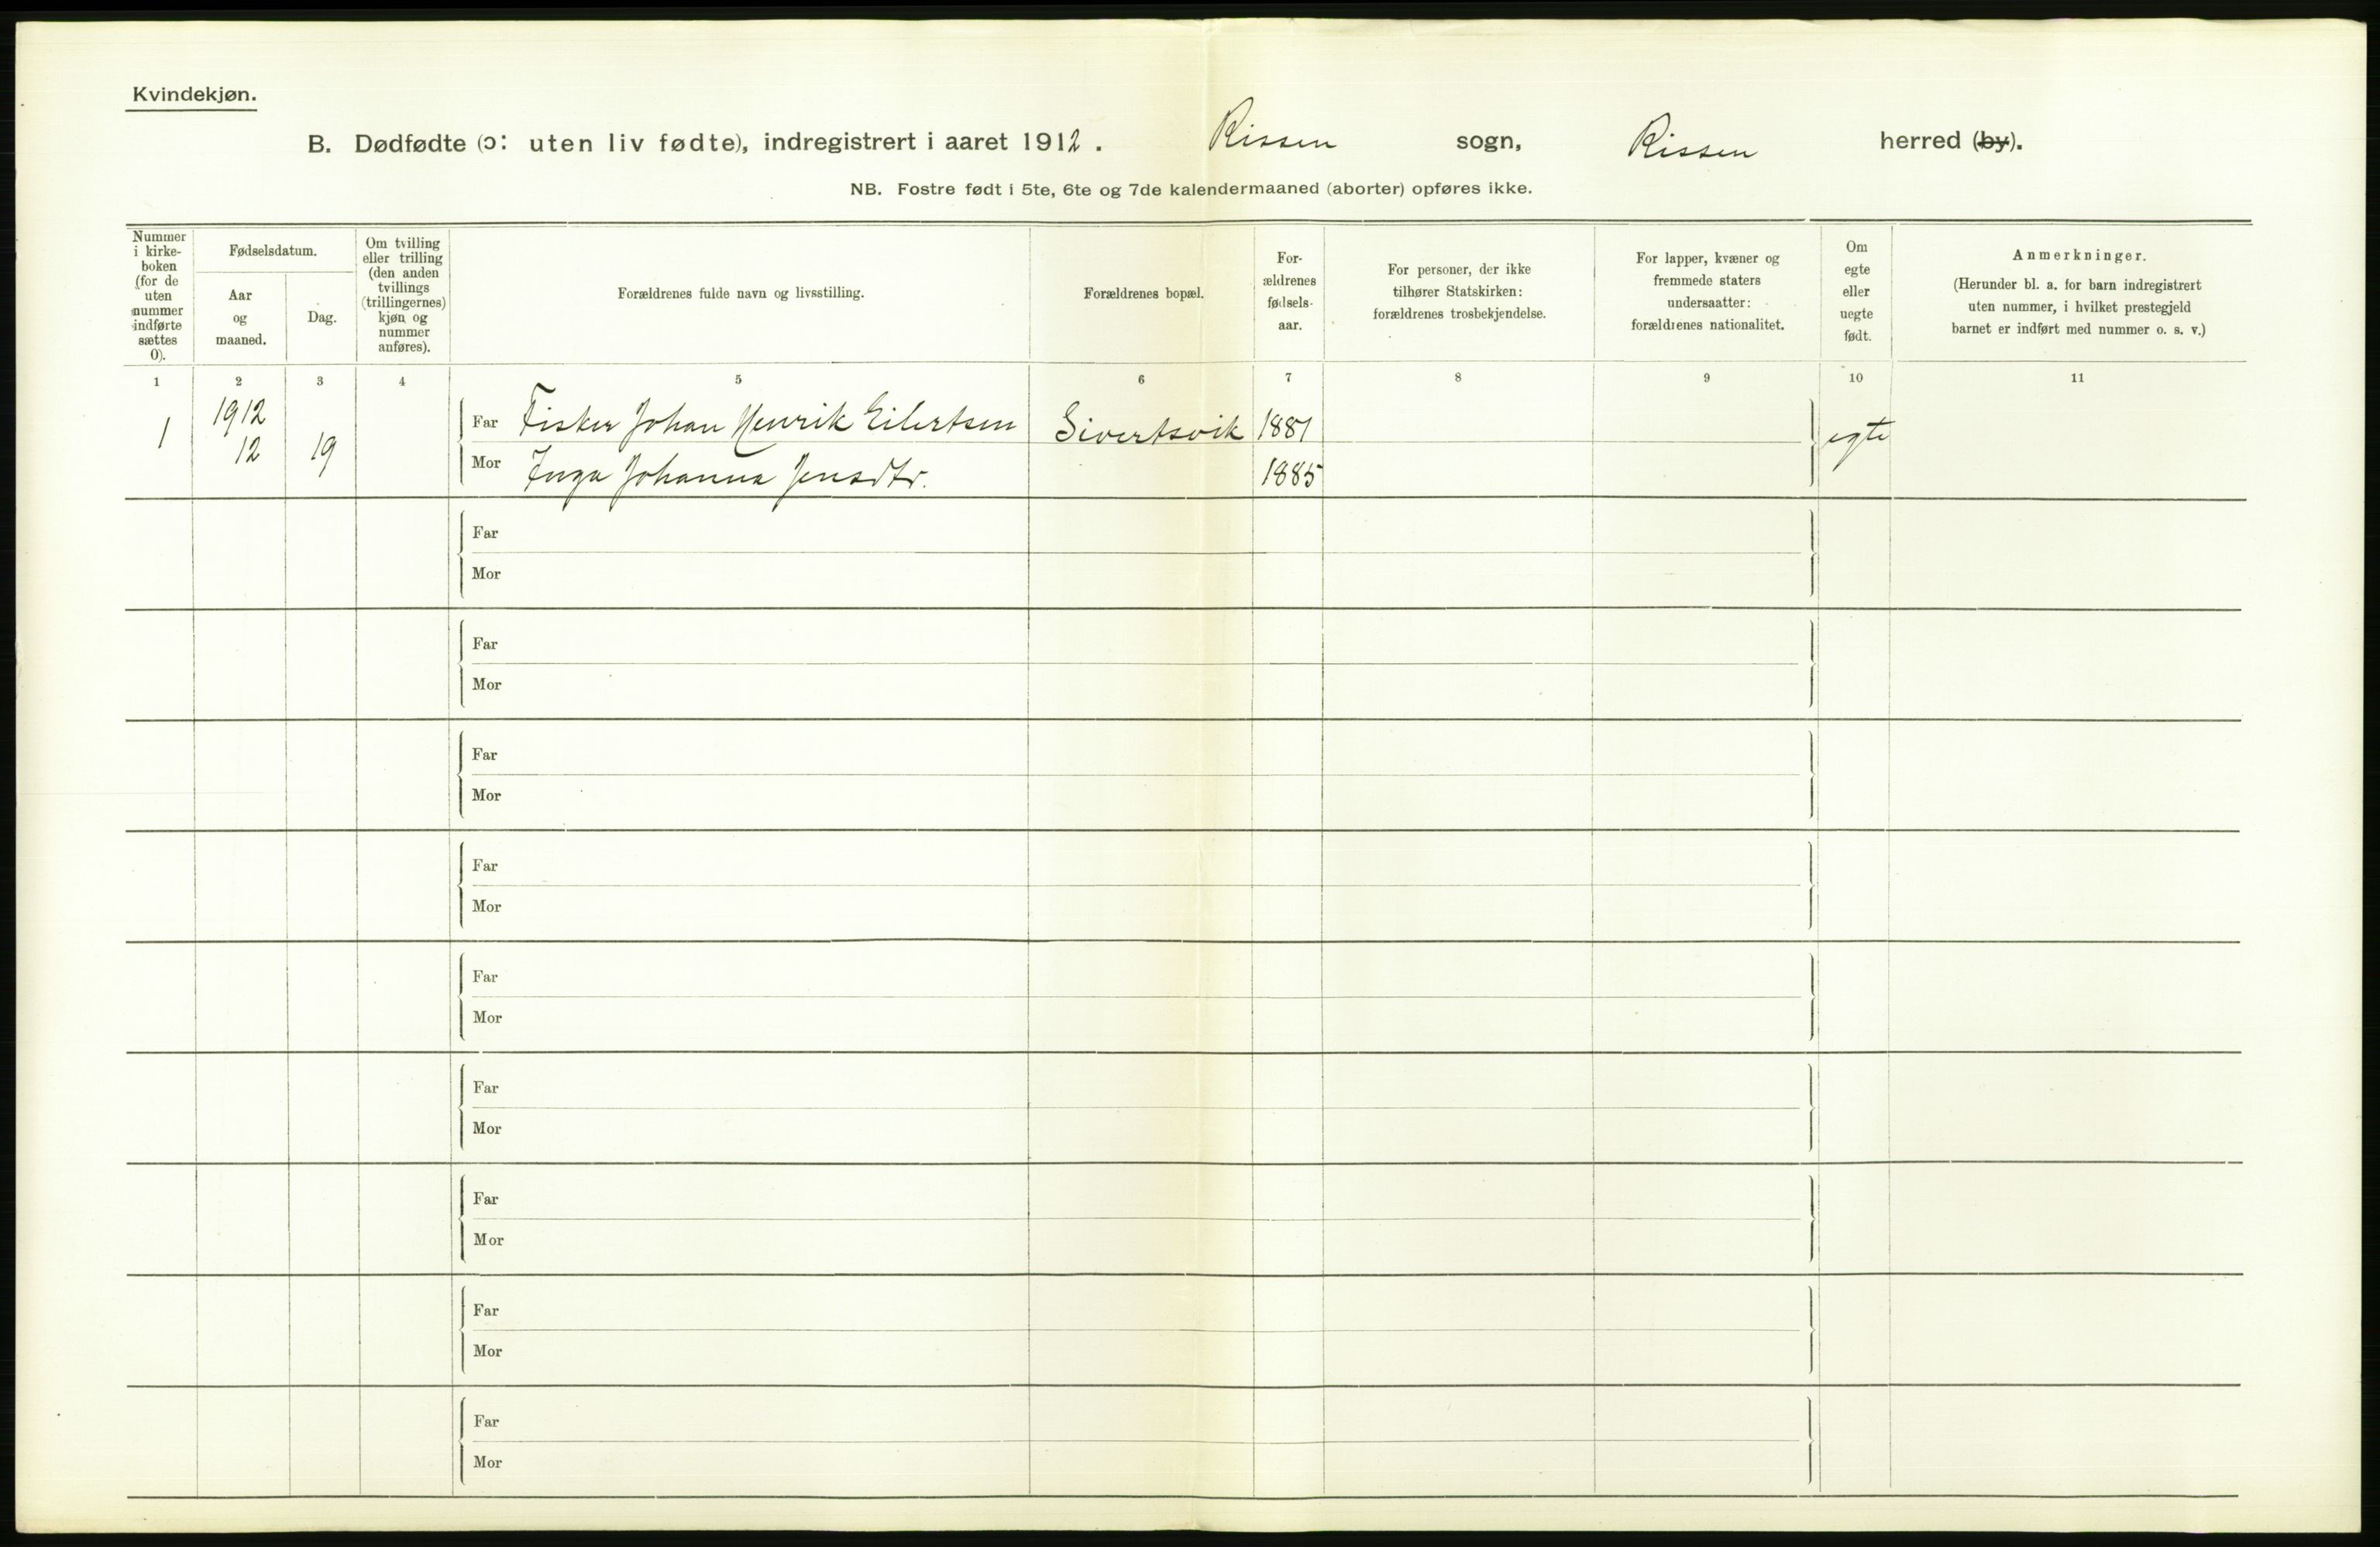 Kvindekjøn.
B. Dødfødte (ɔ: uten liv fødte), indregistrert i aaret 1912. Rissen sogn, Rissen herred (by).
NB. Fostre født i 5te, 6te og 7de kalendermaaned (aborter) opføres ikke.
Nummer
i kirke-
boken
(for de
uten
nummer
indførte
sættes
0).
Fødselsdatum.
Aar
og
maaned.
Dag.
Om tvilling
eller trilling
(den anden
tvillings
(trillingernes)
kjøn og
nummer
anføres).
Forældrenes fulde navn og livsstilling.
Forældrenes bopæl.
For-
ældrenes
fødsels-
aar.
For personer, der ikke
tilhører Statskirken:
forældrenes trosbekjendelse.
For lapper, kvæner og
fremmede staters
undersaatter:
forældrenes nationalitet.
Om
egte
eller
uegte
født.
Anmerkninger.
(Herunder bl. a. for barn indregistrert
uten nummer, i hvilket prestegjeld
barnet er indført med nummer o. s. v.)
1 2 3 4 5 6 7 8 9 10 11
1 1912
12 19
Far Fisker Johan Henrik Eilertsen Sivertsvik 1881 egte
Mor Inga Johanna Jensdtr. 1885
Far
Mor
Far
Mor
Far
Mor
Far
Mor
Far
Mor
Far
Mor
Far
Mor
Far
Mor
Far
Mor